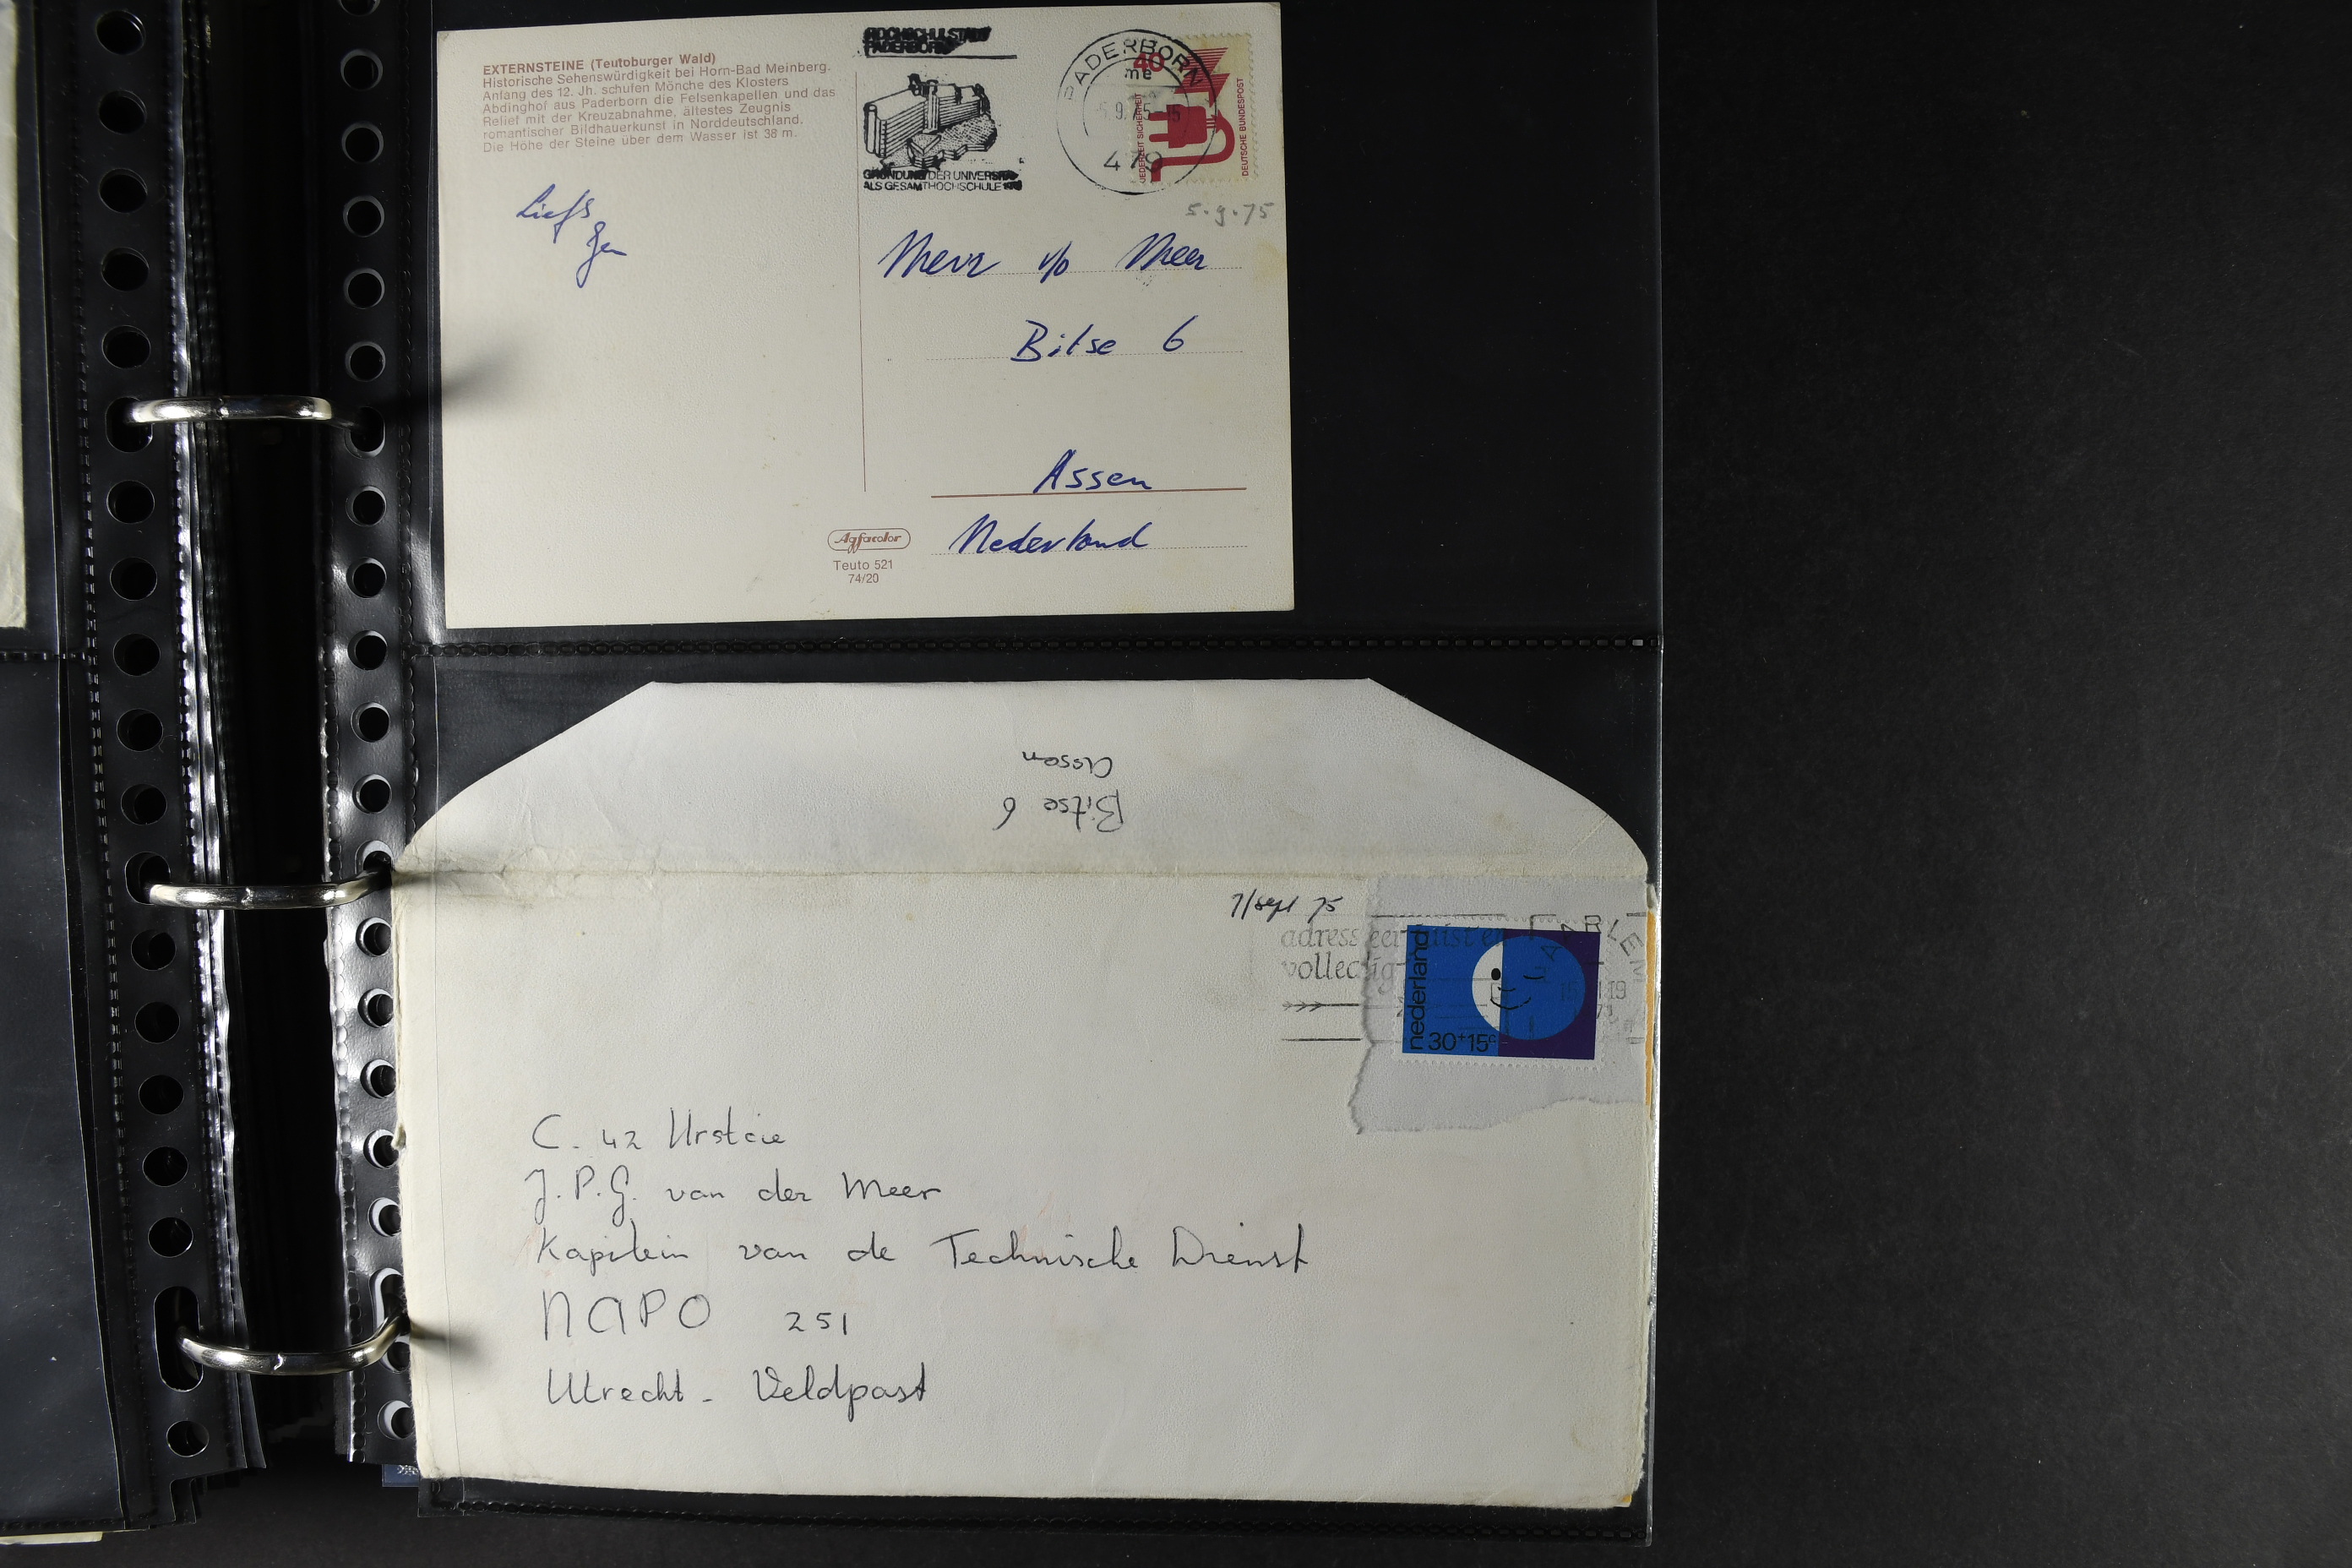 EXTERNSTEINE (Teutoburger Wald)
Historische Sehenswürdigkeit bei Horn-Bad Meinberg.
Anfang des 12. Jh. schufen Mönche des Klosters
Abdinghof aus Paderborn die Felsenkapellen und das
Relief mit der Kreuzabnahme, ältestes Zeugnis
romantischer Bildhauerkunst in Norddeutschland.
Die Höhe der Steine über dem Wasser ist 38 m.
HOCHSCHULSTADT
PADERBORN
GRÜNDUNG DER UNIVERSITÄT
ALS GESAMTHOCHSCHULE
PADERBORN
me
479
40
JEDERZEIT SICHERHEIT
DEUTSCHE BUNDESPOST
5.9.75
Liefs
Mevr v/d Meer
Bitse 6
Assen
Nederland
Agfacolor
Teuto 521
74/20
Bitse 6
Assen
7/sept 75
adresseer juist en
volledig
HAARLEM
nederland
30+15c
C. 42 Urstcie
J.P.G. van der Meer
Kapitein van de Technische Dienst
NAPO 251
Utrecht - Veldpost